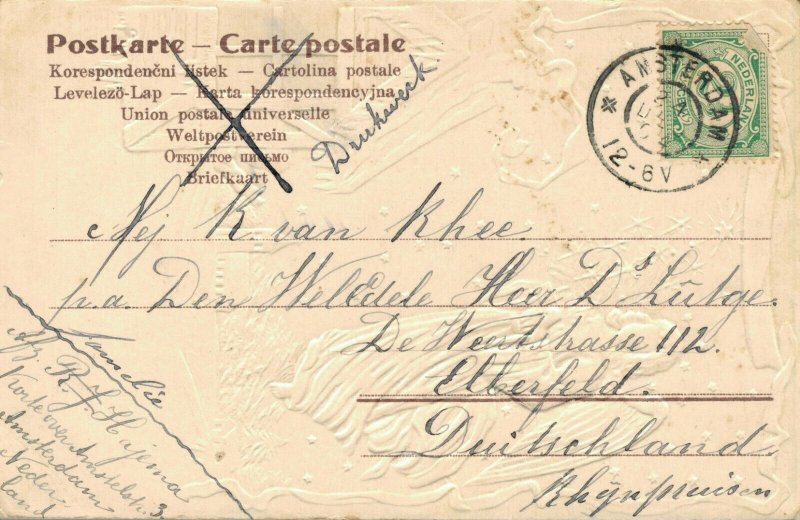 Postkarte – Carte postale
Korespondenční listek – Cartolina postale
Levelező-Lap – Karta korespondencyjna
Union postale universelle
Weltpostverein
Открытое письмо
Briefkaart
Drukwerk.
NEDERLAND
AMSTERDAM
12-6V
Mej K. van Rhee.
p.a. Den WelEdele Heer Ds Lütge.
De Weertstrasse 112.
Elberfeld.
Duitschland.
Rhijnpruisen
Familie
Afz R. J. Hajema
Korte Amstelstr. 3
Amsterdam
Neder
land